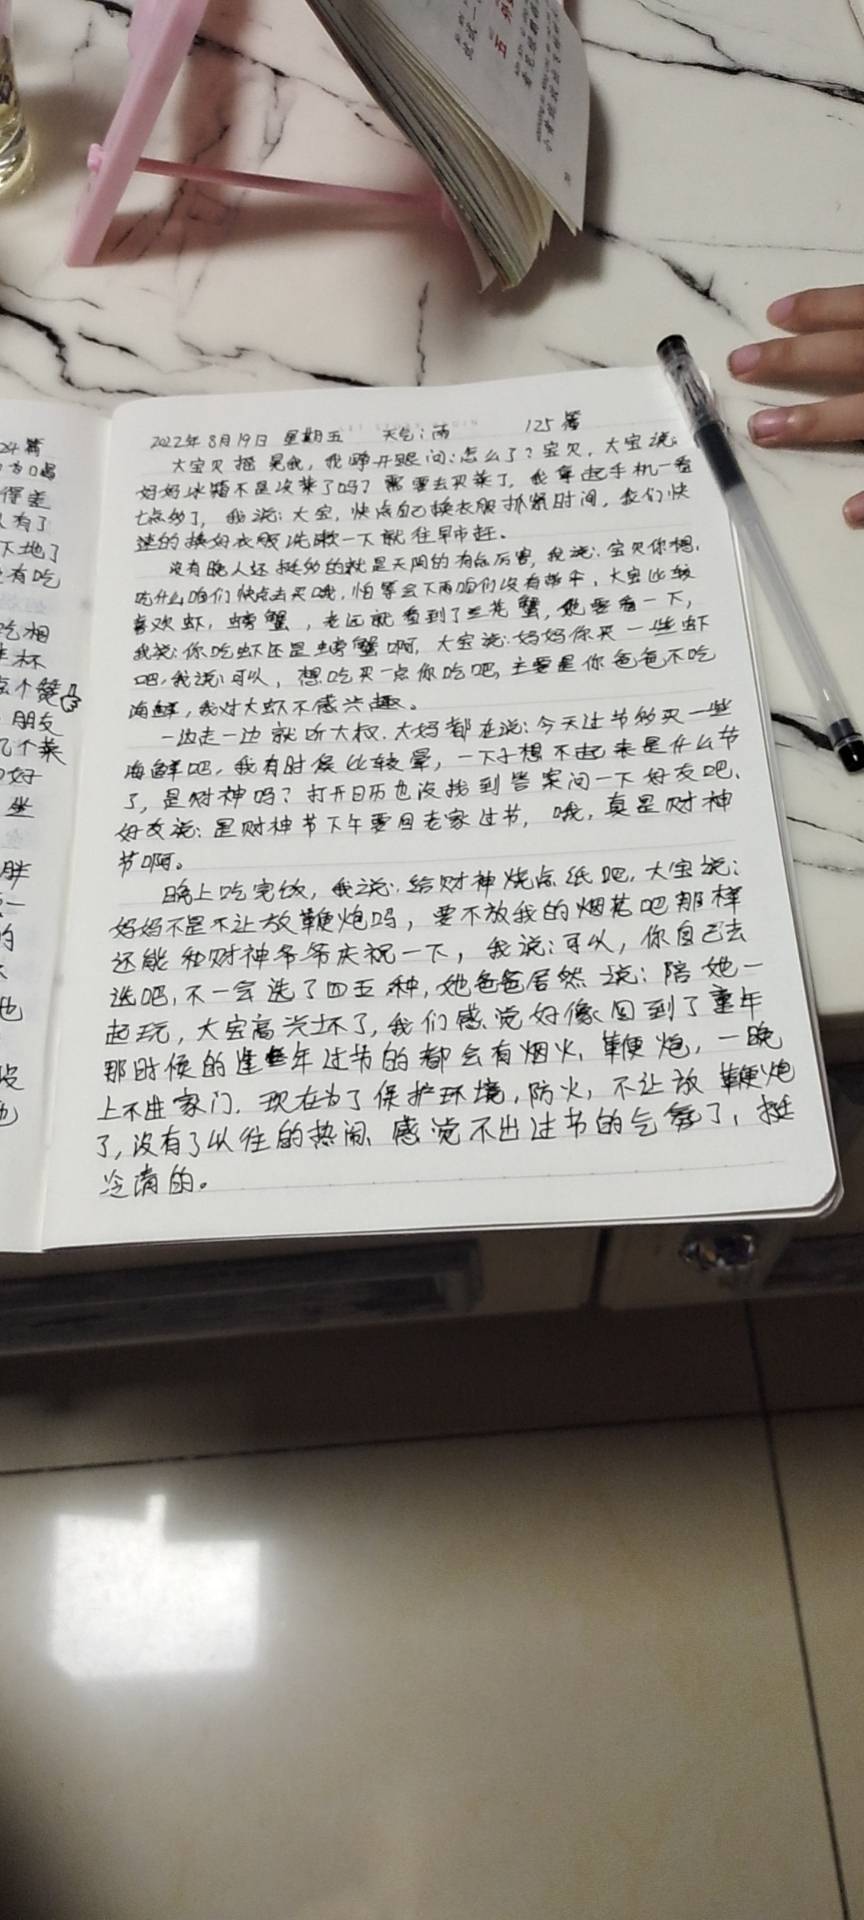 2022年8月19日 星期五 天气:雨 125篇
大宝贝摇晃我,我睁开眼问:怎么了?宝贝,大宝说:
妈妈冰箱不是没菜了吗?需要去买菜了,我拿起手机一看
七点多了,我说:大宝,快点自己换衣服抓紧时间,我们快
速的换好衣服洗漱一下就往早市赶。
没有晚人还挺多的就是天阴的有点厉害,我说:宝贝你想
吃什么咱们快点去买哦,怕等会下雨咱们没有带伞,大宝比较
喜欢虾,螃蟹,老远就看到了兰花蟹,她要看一下,
我说:你吃虾还是螃蟹啊,大宝说:妈妈你买一些虾
吧,我说:可以,想吃买一点你吃吧,主要是你爸爸不吃
海鲜,我对大虾不感兴趣。
一边走一边就听大叔.大妈都在说:今天过节多买一些
海鲜吧,我有时候比较晕,一下子想不起来是什么节
了,是财神吗?打开日历也没找到答案问一下好友吧.
好友说:是财神节下午要回老家过节,哦,真是财神
节啊。
晚上吃完饭,我说:给财神烧点纸吧,大宝说:
妈妈不是不让放鞭炮吗,要不放我的烟花吧那样
还能和财神爷爷庆祝一下,我说:可以,你自己去
选吧,不一会选了四五种,她爸爸居然说:陪她一
起玩,大宝高兴坏了,我们感觉好像回到了童年
那时候的逢年过节的都会有烟火,鞭炮,一晚
上不进家门.现在为了保护环境,防火,不让放鞭炮
了,没有了以往的热闹.感觉不出过节的气氛了,挺
冷清的。